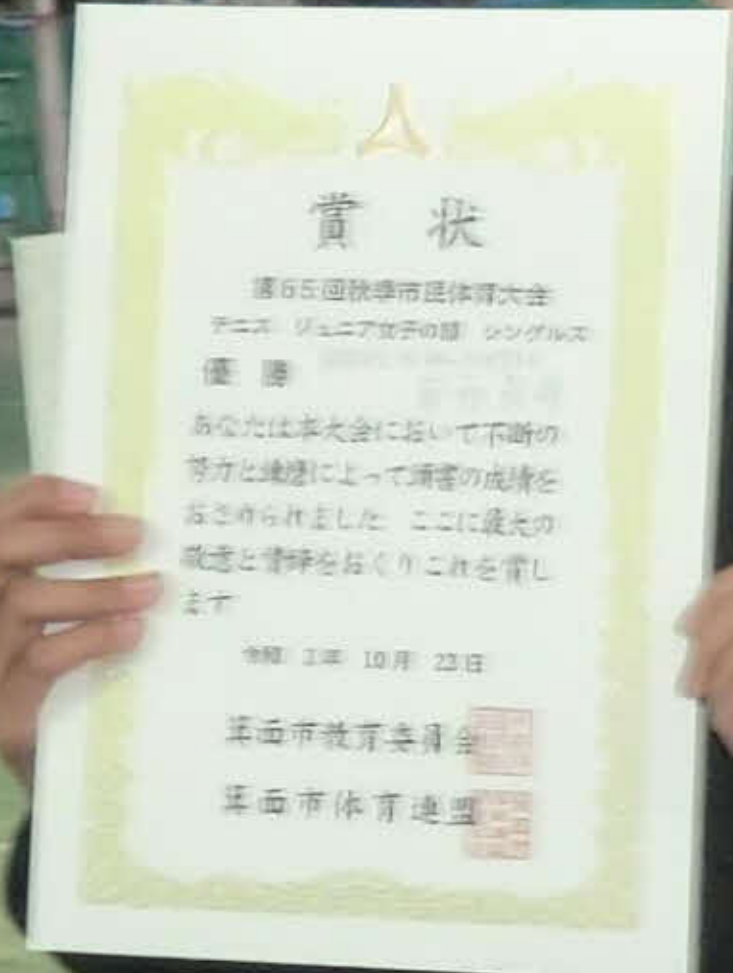 賞状
第65回秋季市民体育大会
テニス ジュニア女子の部 シングルス
優勝
あなたは本大会において不断の
努力と練磨によって頭書の成績を
おさめられました ここに最大の
敬意と賞賛をおくりこれを賞し
ます
令和 年 10月 23日
箕面市教育委員会
箕面市体育連盟